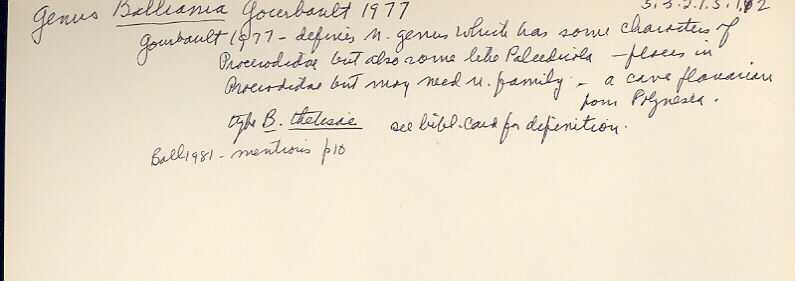 Genus Balliania Gourbault 1977 5.3.2.1.3.1.12
Gourbault 1977 - defines n. genus which has some characters of
Procerodidae but also some like Paludicola - places in
Procerodidae but may need n. family - a cave planarian
from Polynesia.
type B. thetisae see bibl. card for definition.
Ball 1981 - mentions p10